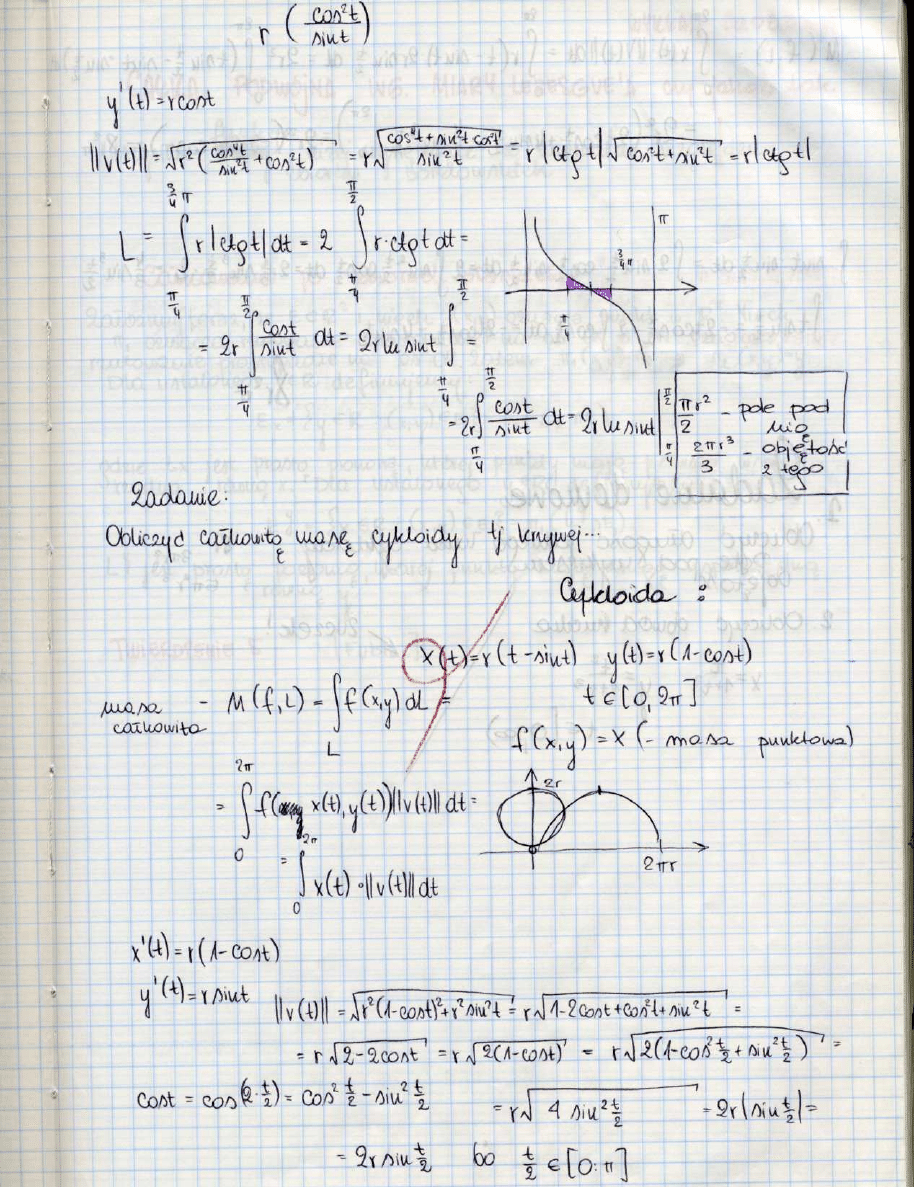 r (cos²t / sint)
y'(t) = r cost
||v(t)|| = √(r²(cos⁴t/sin²t + cos²t)) = r√((cos⁴t + sin²t cos²t)/sin²t) = r |ctgt| √(cos²t + sin²t) = r|ctgt|
L = ∫_{π/4}^{3/4 π} r|ctgt| dt = 2 ∫_{π/4}^{π/2} r·ctgt dt =
π
3/4 π
π/4
= 2r ∫_{π/4}^{π/2} cost/sint dt = 2r ln sint ∫_{π/4}^{π/2} =
= 2r ∫_{π/4}^{π/2} cost/sint dt = 2r ln sint |_{π/4}^{π/2}
πr²/2 - pole pod nią
2πr³/3 - objętość z tego
Zadanie:
Obliczyć całkowitą masę cykloidy tj krzywej...
Cykloida :
x(t) = r(t - sint) y(t) = r(1 - cost)
t ∈ [0, 2π]
masa całkowita - M(f, L) = ∫_L f(x,y) dL =
f(x,y) = x (- masa punktowa)
= ∫_0^{2π} f(x(t), y(t)) ||v(t)|| dt =
2r
2πr
= ∫_0^{2π} x(t) · ||v(t)|| dt
x'(t) = r(1 - cost)
y'(t) = r sint
||v(t)|| = √(r²(1-cost)² + r² sin²t) = r√(1 - 2cost + cos²t + sin²t) =
= r√(2 - 2cost) = r√(2(1 - cost)) = r√(2(1 - cos² t/2 + sin² t/2)) =
cost = cos(2· t/2) = cos² t/2 - sin² t/2
= r√(4 sin² t/2) = 2r|sin t/2| =
= 2r sin t/2 bo t/2 ∈ [0; π]